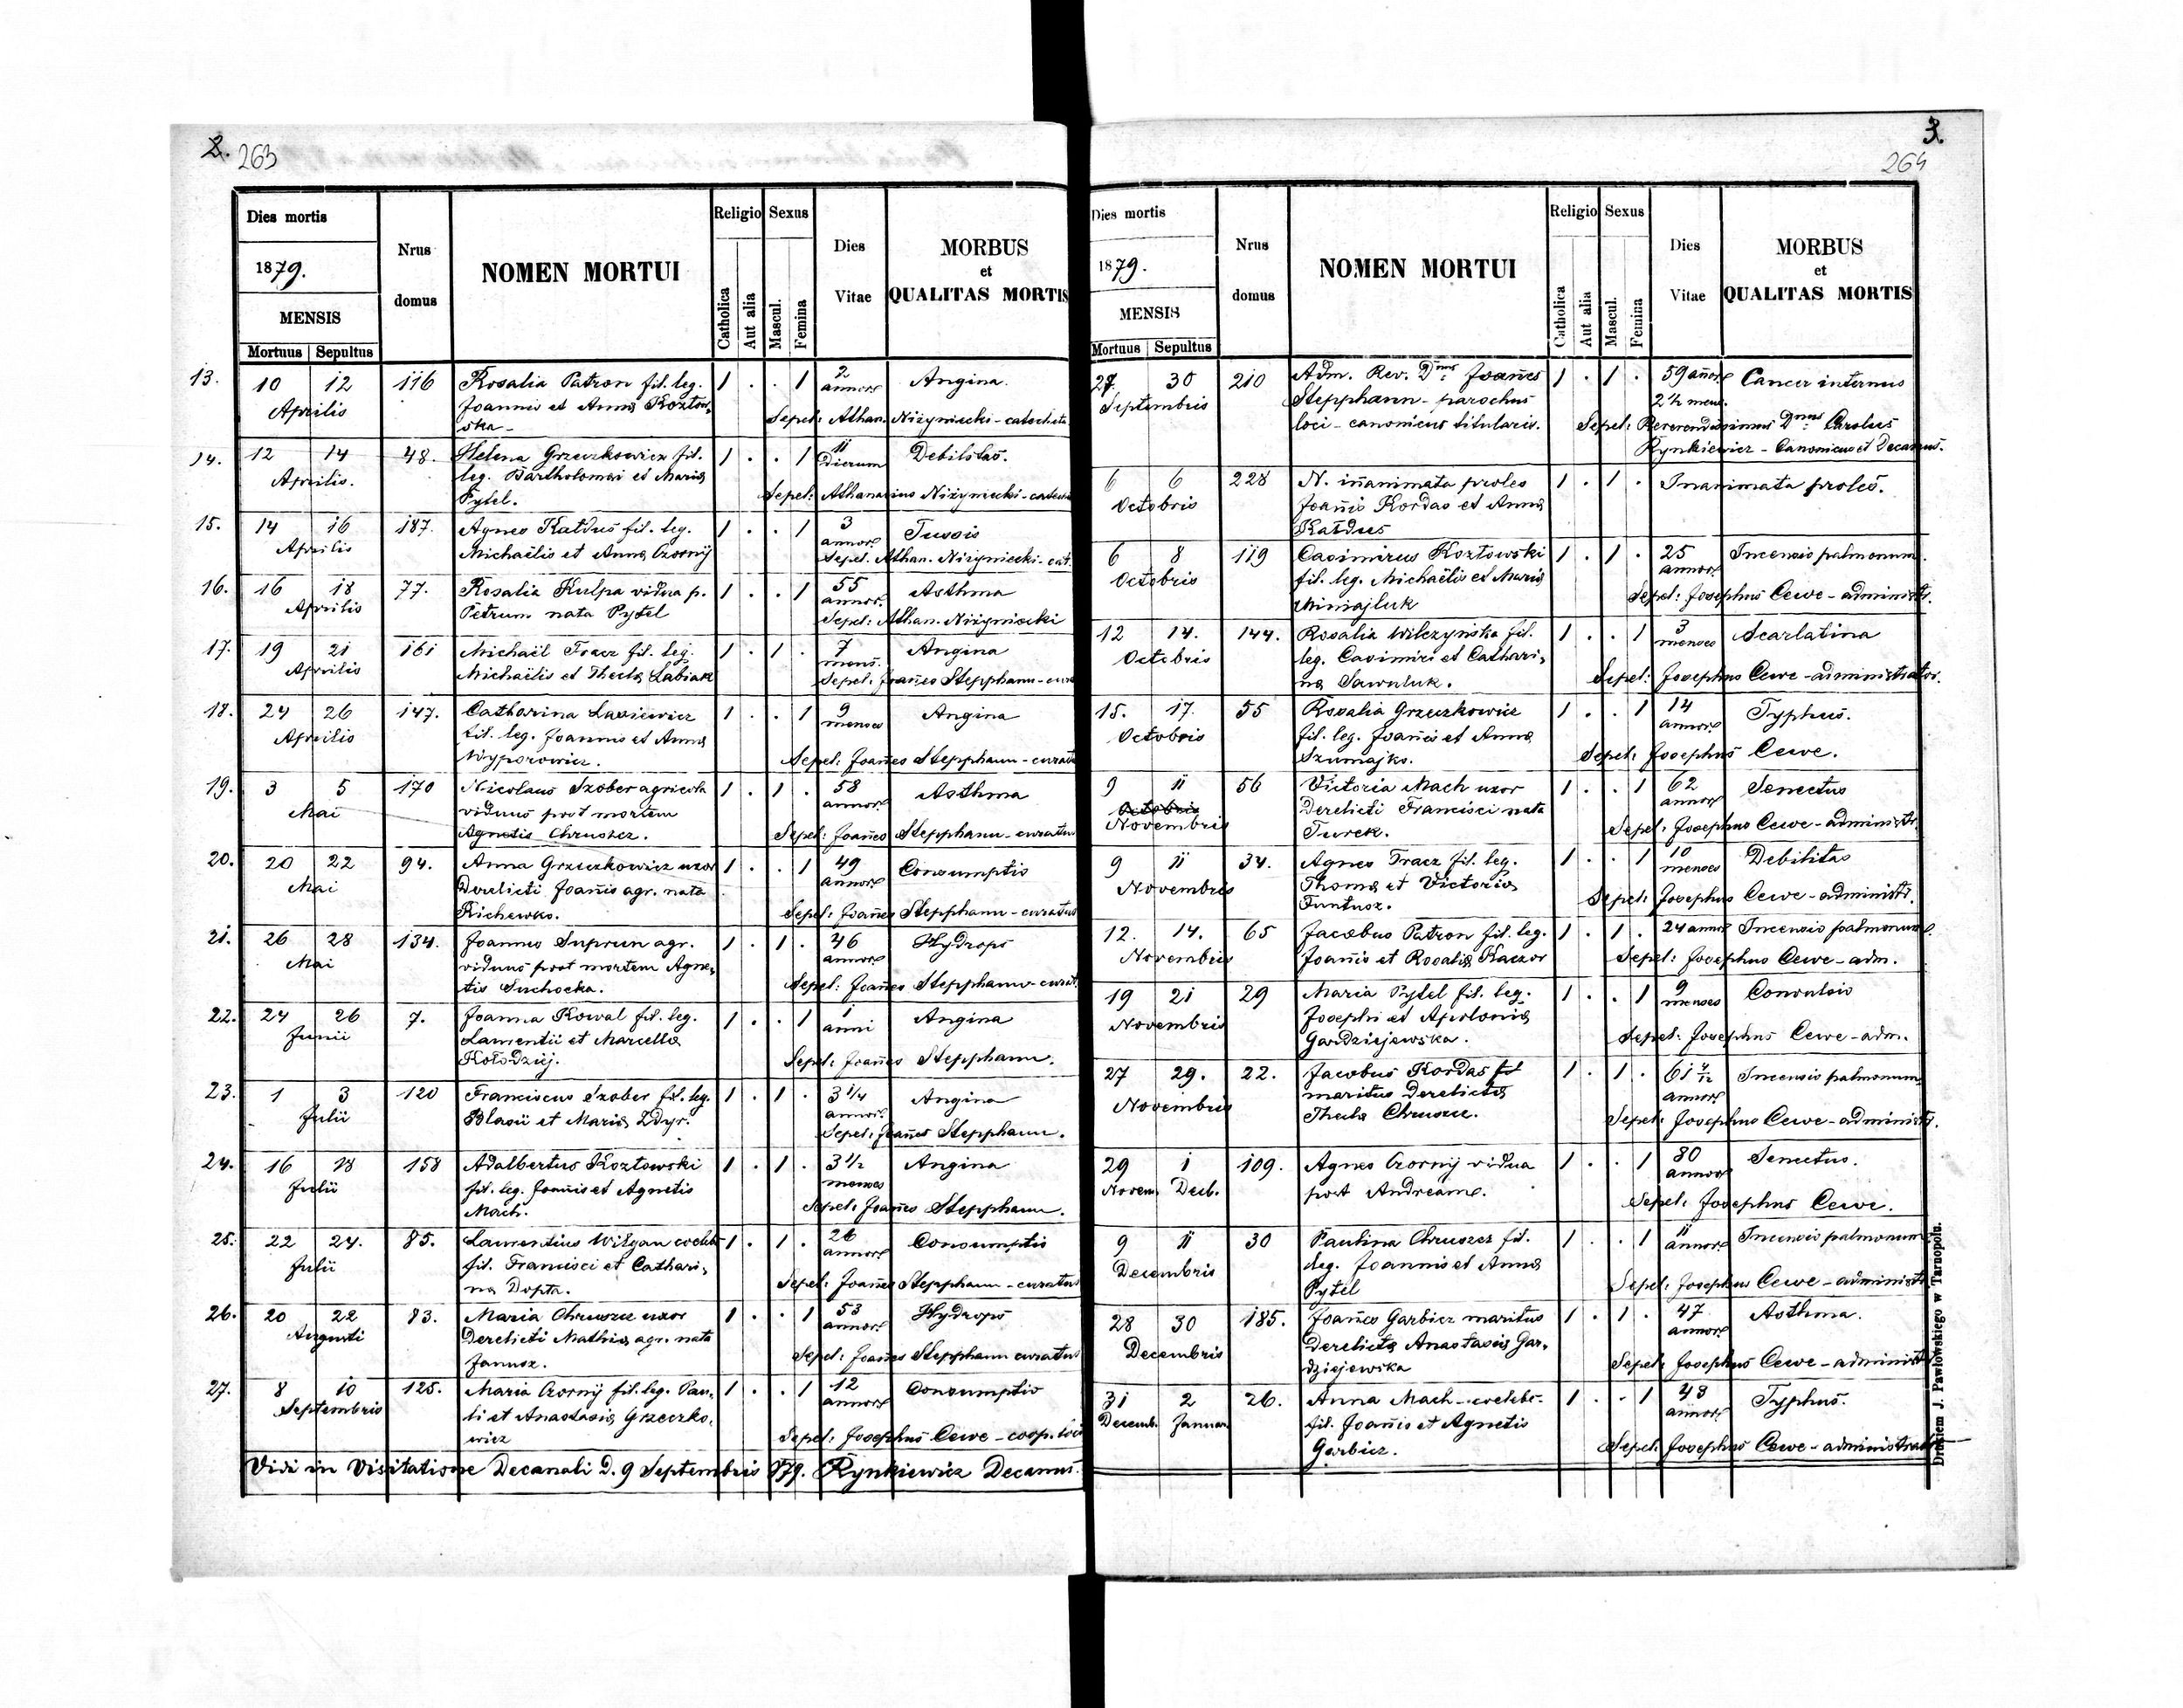 2. 263
Dies mortis
1879.
MENSIS
Mortuus Sepultus
Nrus
domus
NOMEN MORTUI
Religio
Catholica
Aut alia
Sexus
Mascul.
Femina
Dies
Vitae
MORBUS
et
QUALITAS MORTIS
13. 10 12 116 Rosalia Patron fil. leg. 1 . . 1 2 Angina.
Aprilis Joannis et Annæ Kozłow, annor.
ska Sepel: Athan. Niżyniecki - catecheta
14. 12 14 48. Helena Grzeczkowicz fil. 1 . . 1 11 Debilitas.
Aprilis. leg. Bartholomæi et Mariæ dierum
Pytel. Sepel: Athanasius Niżyniecki - catech
15. 14 16 187. Agnes Kałdus fil. leg. 1 . . 1 3 Tussis
Aprilis Michaëlis et Annæ Czornÿ annor.
Sepel. Athan. Niżyniecki - cat.
16. 16 18 77. Rosalia Kulpa vidua p. 1 . . 1 55 Asthma
Aprilis Petrum nata Pytel annor.
Sepel: Athan. Niżyniecki
17. 19 21 161 Michaël Tracz fil. leg. 1 . 1 . 7 Angina
Aprilis Michaëlis et Theclæ Łabiak mens.
Sepel: Joañes Stepphann - cura
18. 24 26 147. Catharina Lasiewicz 1 . . 1 9 Angina
Aprilis fil. leg. Joannis et Annæ menses
Wyporowicz. Sepel: Joañes Stepphann - curat
19. 3 5 170 Nicolaus Szober agricola 1 . 1 . 58 Asthma
Mai viduus post mortem annor.
Agnetis Chruszcz. Sepel: Joañes Stepphann - curatu
20. 20 22 94. Anna Grzeczkowicz uxor 1 . . 1 49 Consumptio
Mai derelicti Joañis agr. nata annor.
Kichewko. Sepel: Joañes Stepphann - curatus
21. 26 28 134. Joannes Suprun agr. 1 . 1 . 46 Hydrops
Mai viduus post mortem Agne, annor.
tis Suchocka. Sepel: Joañes Stepphann - curat.
22. 24 26 7. Joanna Kowal fil. leg. 1 . . 1 1 Angina
Junii Laurentii et Marcellæ anni
Kołodziej. Sepel: Joañes Stepphann.
23. 1 3 120 Franciscus Szober fil. leg. 1 . 1 . 3 1/4 Angina
Julii Blasii et Mariæ Zdyr. annor.
Sepel: Joañes Stepphann.
24. 16 18 158 Adalbertus Kozłowski 1 . 1 . 3 1/2 Angina
Julii fil. leg. Joañis et Agnetis menses
Mach. Sepel: Joañes Stepphann.
25. 22 24. 85. Laurentius Wilgan cœlebs 1 . 1 . 26 Consumptio
Julii fil. Francisci et Cathari, annor.
næ Dopta. Sepel: Joañes Stepphann - curatus
26. 20 22 83. Maria Chruszcz uxor 1 . . 1 53 Hydrops
Augusti derelicti Mathiæ agr. nata annor.
Janusz. Sepel: Joañes Stepphann curatus
27. 8 10 125. Maria Czornÿ fil. leg. Pau, 1 . . 1 12 Consumptio
Septembris li et Anastasiæ Grzeczko, annor.
wicz Sepel: Josephus Cewe - coop. loci
Vidi in Visitatione Decanali d. 9 Septembris 879. Rynkiewicz Decanus.
3.
264
Dies mortis
1879.
MENSIS
Mortuus Sepultus
Nrus
domus
NOMEN MORTUI
Religio
Catholica
Aut alia
Sexus
Mascul.
Femina
Dies
Vitae
MORBUS
et
QUALITAS MORTIS
27. 30 210 Adm. Rev. Dnus Joañes 1 . 1 . 59 añor. Cancer internus
Septembris Stepphann - parochus 2 1/2 mens.
loci - canonicus titularis. Sepel: Reverendissimus Dnus Carolus
Rynkiewicz - Canonicus et Decanus.
6 6 228 N. iñanimata proles 1 . 1 . Inanimata proles.
Octobris Joañis Kordas et Annæ
Kałdus
6 8 119 Casimirus Kozłowski 1 . 1 . 25 Incensio palmonum.
Octobris fil. leg. Michaëlis et Mariæ annor.
Miniajluk Sepel: Josephus Cewe - administr.
12 14. 144. Rosalia Wilczyńska fil. 1 . . 1 3 Scarlatina
Octobris leg. Casimiri et Cathari, menses
næ Sawuluk. Sepel: Josephus Cewe - administrator.
15. 17. 55 Rosalia Grzeczkowicz 1 . . 1 14 Typhus.
Octobris fil. leg. Joañis et Annæ annor.
Szumajko. Sepel: Josephus Cewe.
9 11 56 Victoria Mach uxor 1 . . 1 62 Senectus
Octobris derelicti Francisci nata annor.
Novembris Turek. Sepel: Josephus Cewe - administr.
9 11 34. Agnes Tracz fil. leg. 1 . . 1 10 Debilitas
Novembris Thomæ et Victoriæ menses
Funtusz. Sepel: Josephus Cewe - administr.
12. 14. 65 Jacobus Patron fil. leg. 1 . 1 . 24 annor. Incensio palmonum.
Novembris Joañis et Rosaliæ Kaczor Sepel: Josephus Cewe - adm.
19 21 29 Maria Pytel fil. leg. 1 . . 1 9 Convulsio
Novembris Josephi et Apoloniæ menses
Gardziejewska. Sepel: Josephus Cewe - adm.
27 29. 22. Jacobus Kordas fil 1 . 1 . 61 4/12 Incensio palmonum
Novembris maritus derelictæ annor.
Theclæ Chruszcz. Sepel: Josephus Cewe - administr.
29 1 109. Agnes Czornÿ vidua 1 . . 1 80 Senectus.
Novem. Decb. post Andream. annor.
Sepel: Josephus Cewe.
9 11 30 Paulina Chruszcz fil. 1 . . 1 11 Incensio palmonum
Decembris leg. Joannis et Annæ annor.
Pytel Sepel: Josephus Cewe - administr
28 30 185. Joañes Garbicz maritus 1 . 1 . 47 Asthma.
Decembris derelictæ Anastasiæ Gar, annor.
dziejewska Sepel: Josephus Cewe - administr
31 2 26. Anna Mach - cœlebs - 1 . . 1 48 Typhus.
Decemb. Januar. fil. Joañis et Agnetis annor.
Garbicz. Sepel: Josephus Cewe - administrator
Drukiem J. Pawłowskiego w Tarnopolu.